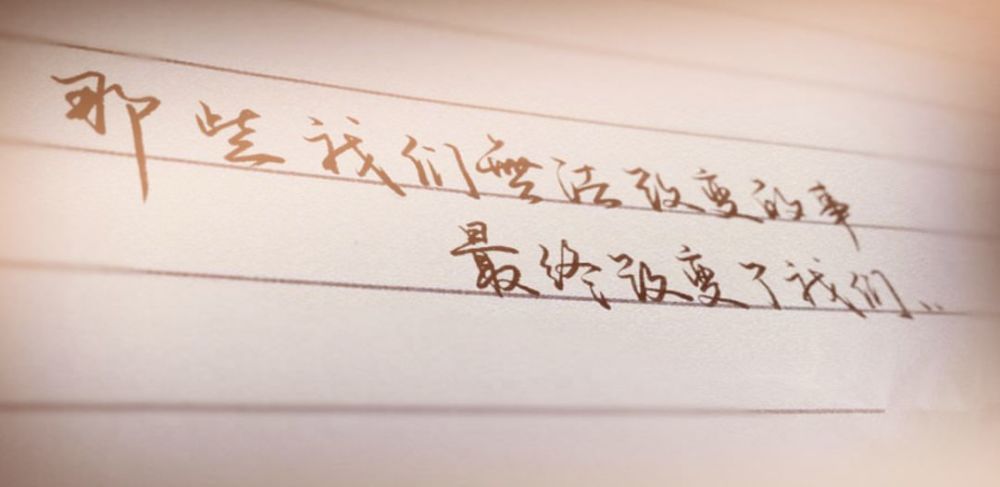 那些我们無法改变的事
最终改变了我们..